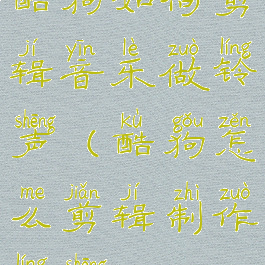 酷狗如何剪
jí yīn lè zuò líng
辑音乐做铃
shēng kù gǒu zěn
声（酷狗怎
me jiǎn jí zhì zuò
么剪辑制作
líng shēng